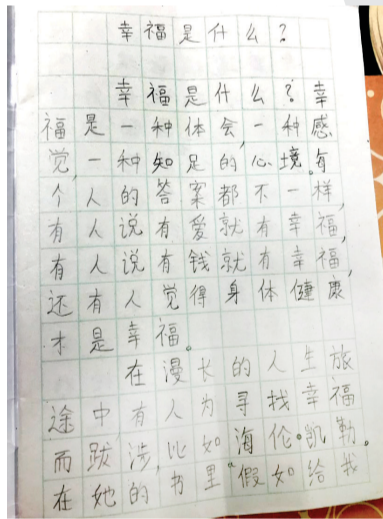 幸福是什么？
幸福是什么？幸
福是一种体会,一种感
觉,一种知足的心境。每
个人的答案都不一样,
有人说有爱就有幸福,
有人说有钱就有幸福,
还有人觉得身体健康
才是幸福。
在漫长的人生旅
途中,有人为寻找幸福
而跋涉,比如海伦。凯勒。
在她的书里“假如给我